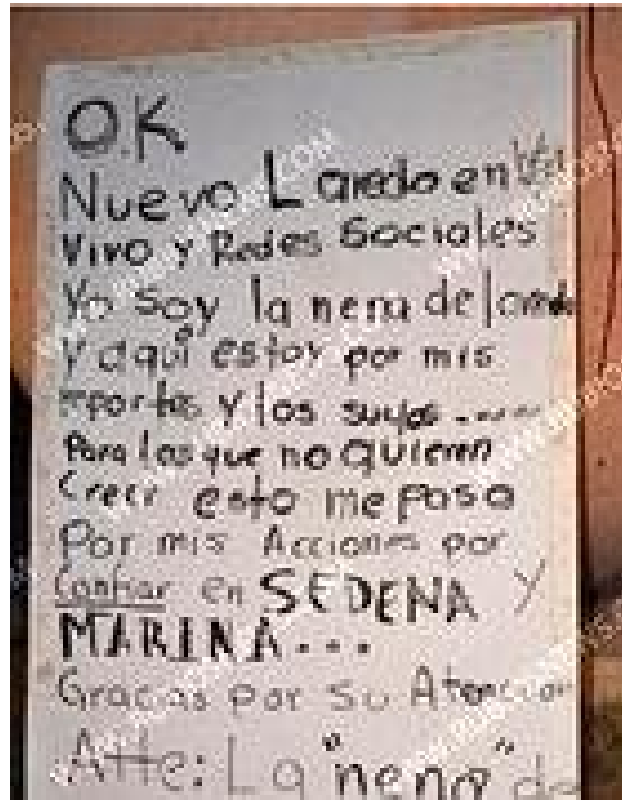 O.K
Nuevo Laredo en
Vivo y Redes Sociales
Yo soy la nena de Laredo
Y aquí estoy por mis
reportes y los suyos ......
Para los que no quieren
Creer esto me paso
Por mis Acciones por
Confiar en SEDENA Y
MARINA...
Gracias por su Atencion
Atte: La "nena" de